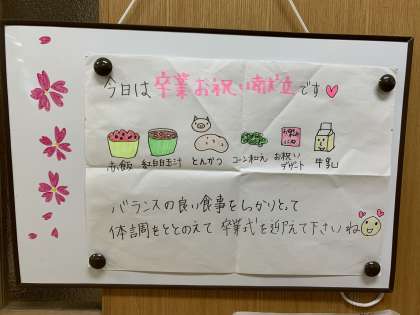 今日は卒業お祝い献立です
赤飯 紅白白玉汁 とんかつ コーン和え お祝いデザート 牛乳
バランスの良い食事をしっかりとって
体調をととのえて卒業式を迎えて下さいね